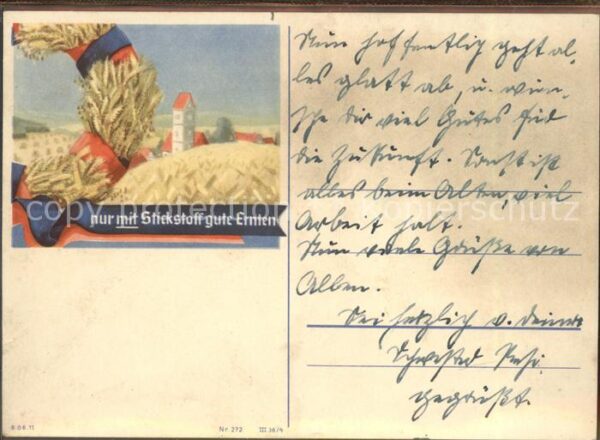 nur mit Stickstoff gute Ernten
Nun hoffentlich geht al-
les glatt ab, u. wün-
sche dir viel Gutes für
die Zukunft. Sonst ist
alles beim Alten, viel
Arbeit halt.
Nun viele Grüße von
Allen.
Sei herzlich v. deiner
Schwester
gegrüßt.
6 06 11 Nr 272 III 36/9
copyright